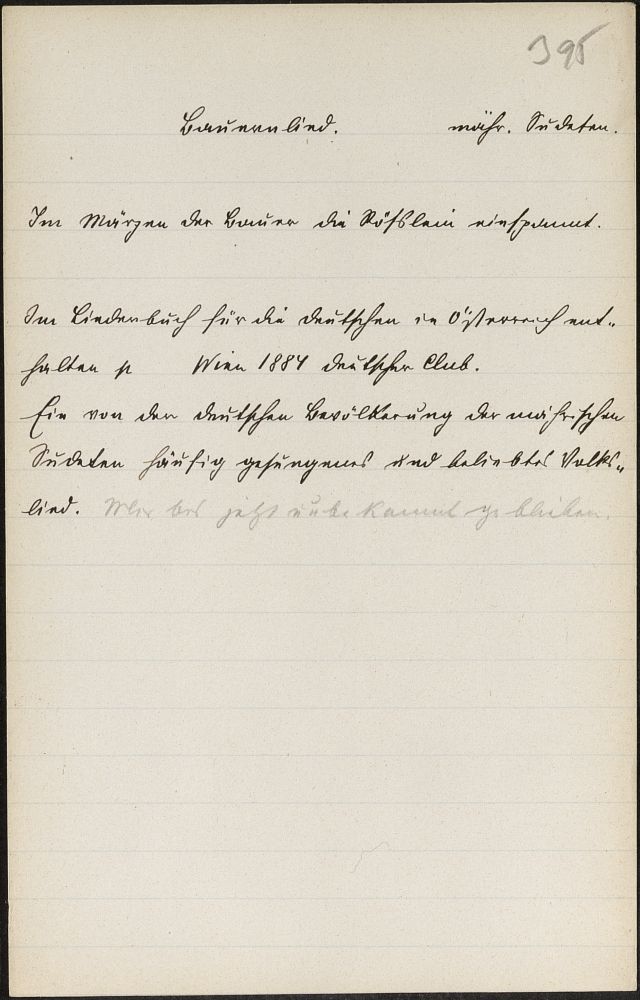 395
Bauernlied. mähr. Sudeten.
Im Märzen der Bauer die Rößlein einspannt.
Im Liederbuch für die Deutschen in Österreich ent-
halten Wien 1884 Deutscher Club.
Ein von der deutschen Bevölkerung der mährischen
Sudeten häufig gesungenes und beliebtes Volks-
lied. Mir bis jetzt unbekannt geblieben.